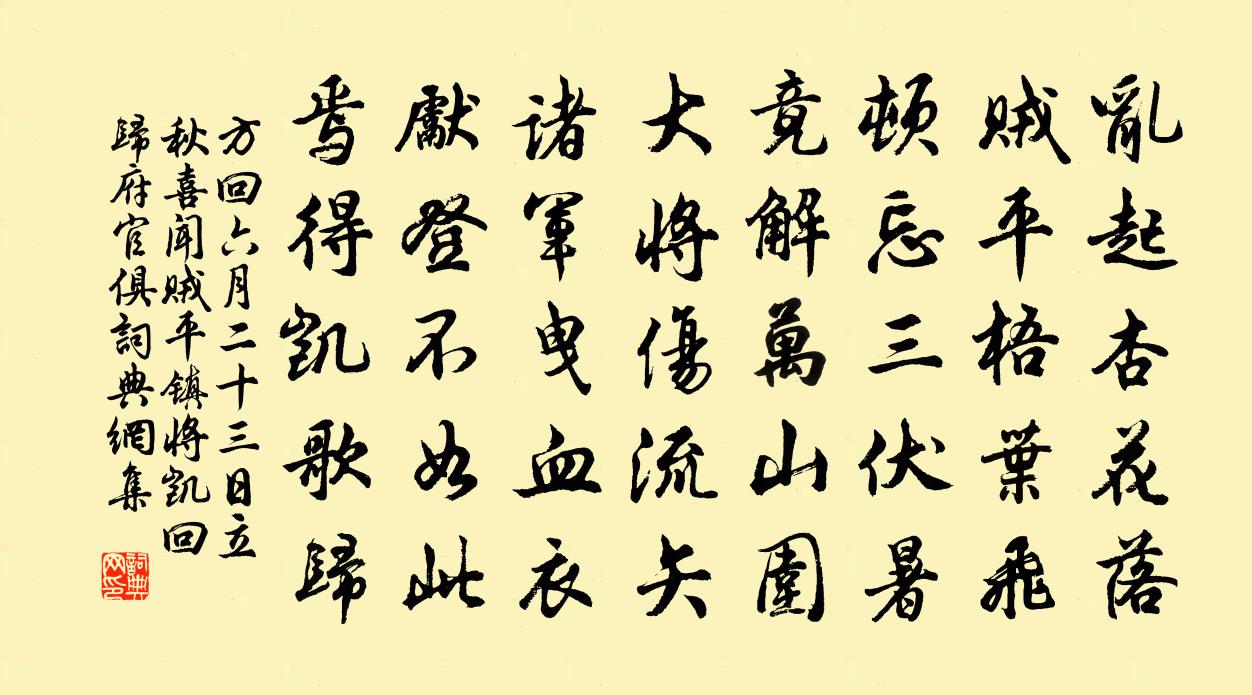 亂起杏花落
賊平梧葉飛
頓忘三伏暑
竟解萬山圍
大將傷流矢
诸軍曳血衣
獻登不如此
焉得凱歌歸
方回六月二十三日立
秋喜闻賊平鎮將凱回
歸府官俱詞典網集
詞典
网印